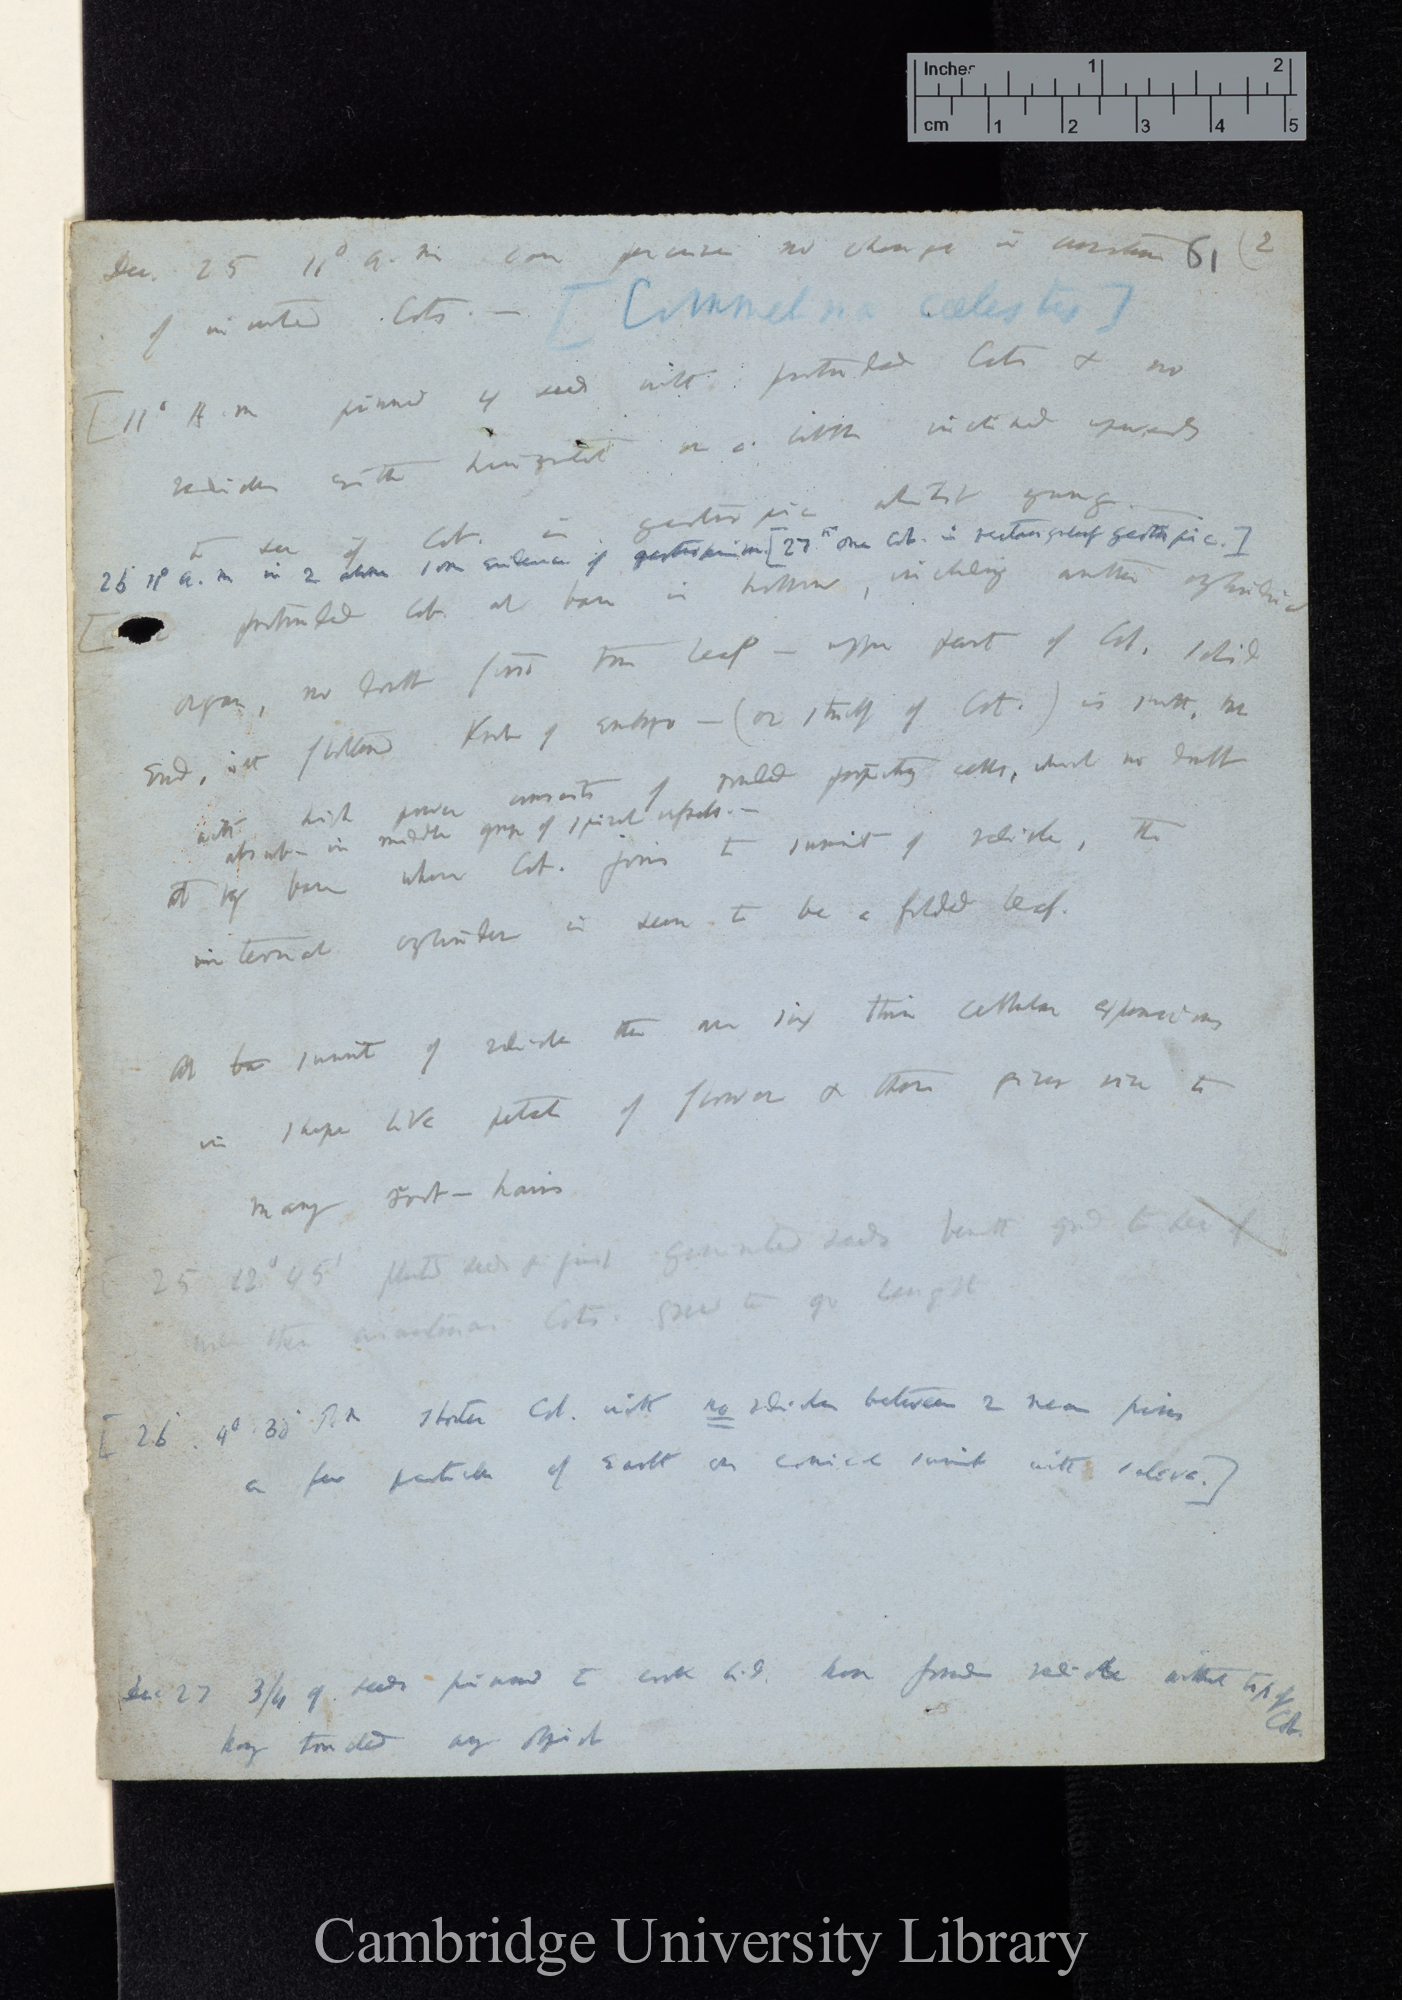 Inches 1 2
cm 1 2 3 4 5
Dec. 25 11° a.m can perceive no change in curvature 61 (2
of inverted Cots. — [Commelina cœlestis]
[11° A.m pinned 4 seeds with protruded Cots & no
radicles either horizontal or a little inclined upwards
to see if Cot. is geotropic whilst young.
26 11° a.m in 2 above some evidence of geotropism. [27th one Cot. is rectangularly geotropic.]
[ protruded Cot. at base is hollow, including another cylindrical
organ, no doubt first true leaf — upper part of Cot. solid
End, with flattened Knob of embryo — (or itself of Cot.) is
with high power consists of projecting cells, which no doubt
absorb — in middle group of spiral vessels. —
At base where Cot. joins to summit of radicle, the
internal cylinder is seen to be a folded leaf.
At summit of radicle there are six thin cellular expansions
in shape like petals of flower & these gives rise to
many root-hairs
[25 12° 45' seeds & just germinated seeds beneath to see if
Cots. grew to length
[26 . 4° 30' P.m shorter Cot. with no radicle between 2 near pins
a few particles of Earth on conical summit with saliva.]
Dec 27 3/4 of seeds pinned to cork lid. have formed radicle without tip of
Cot.
having touched any object
Cambridge University Library